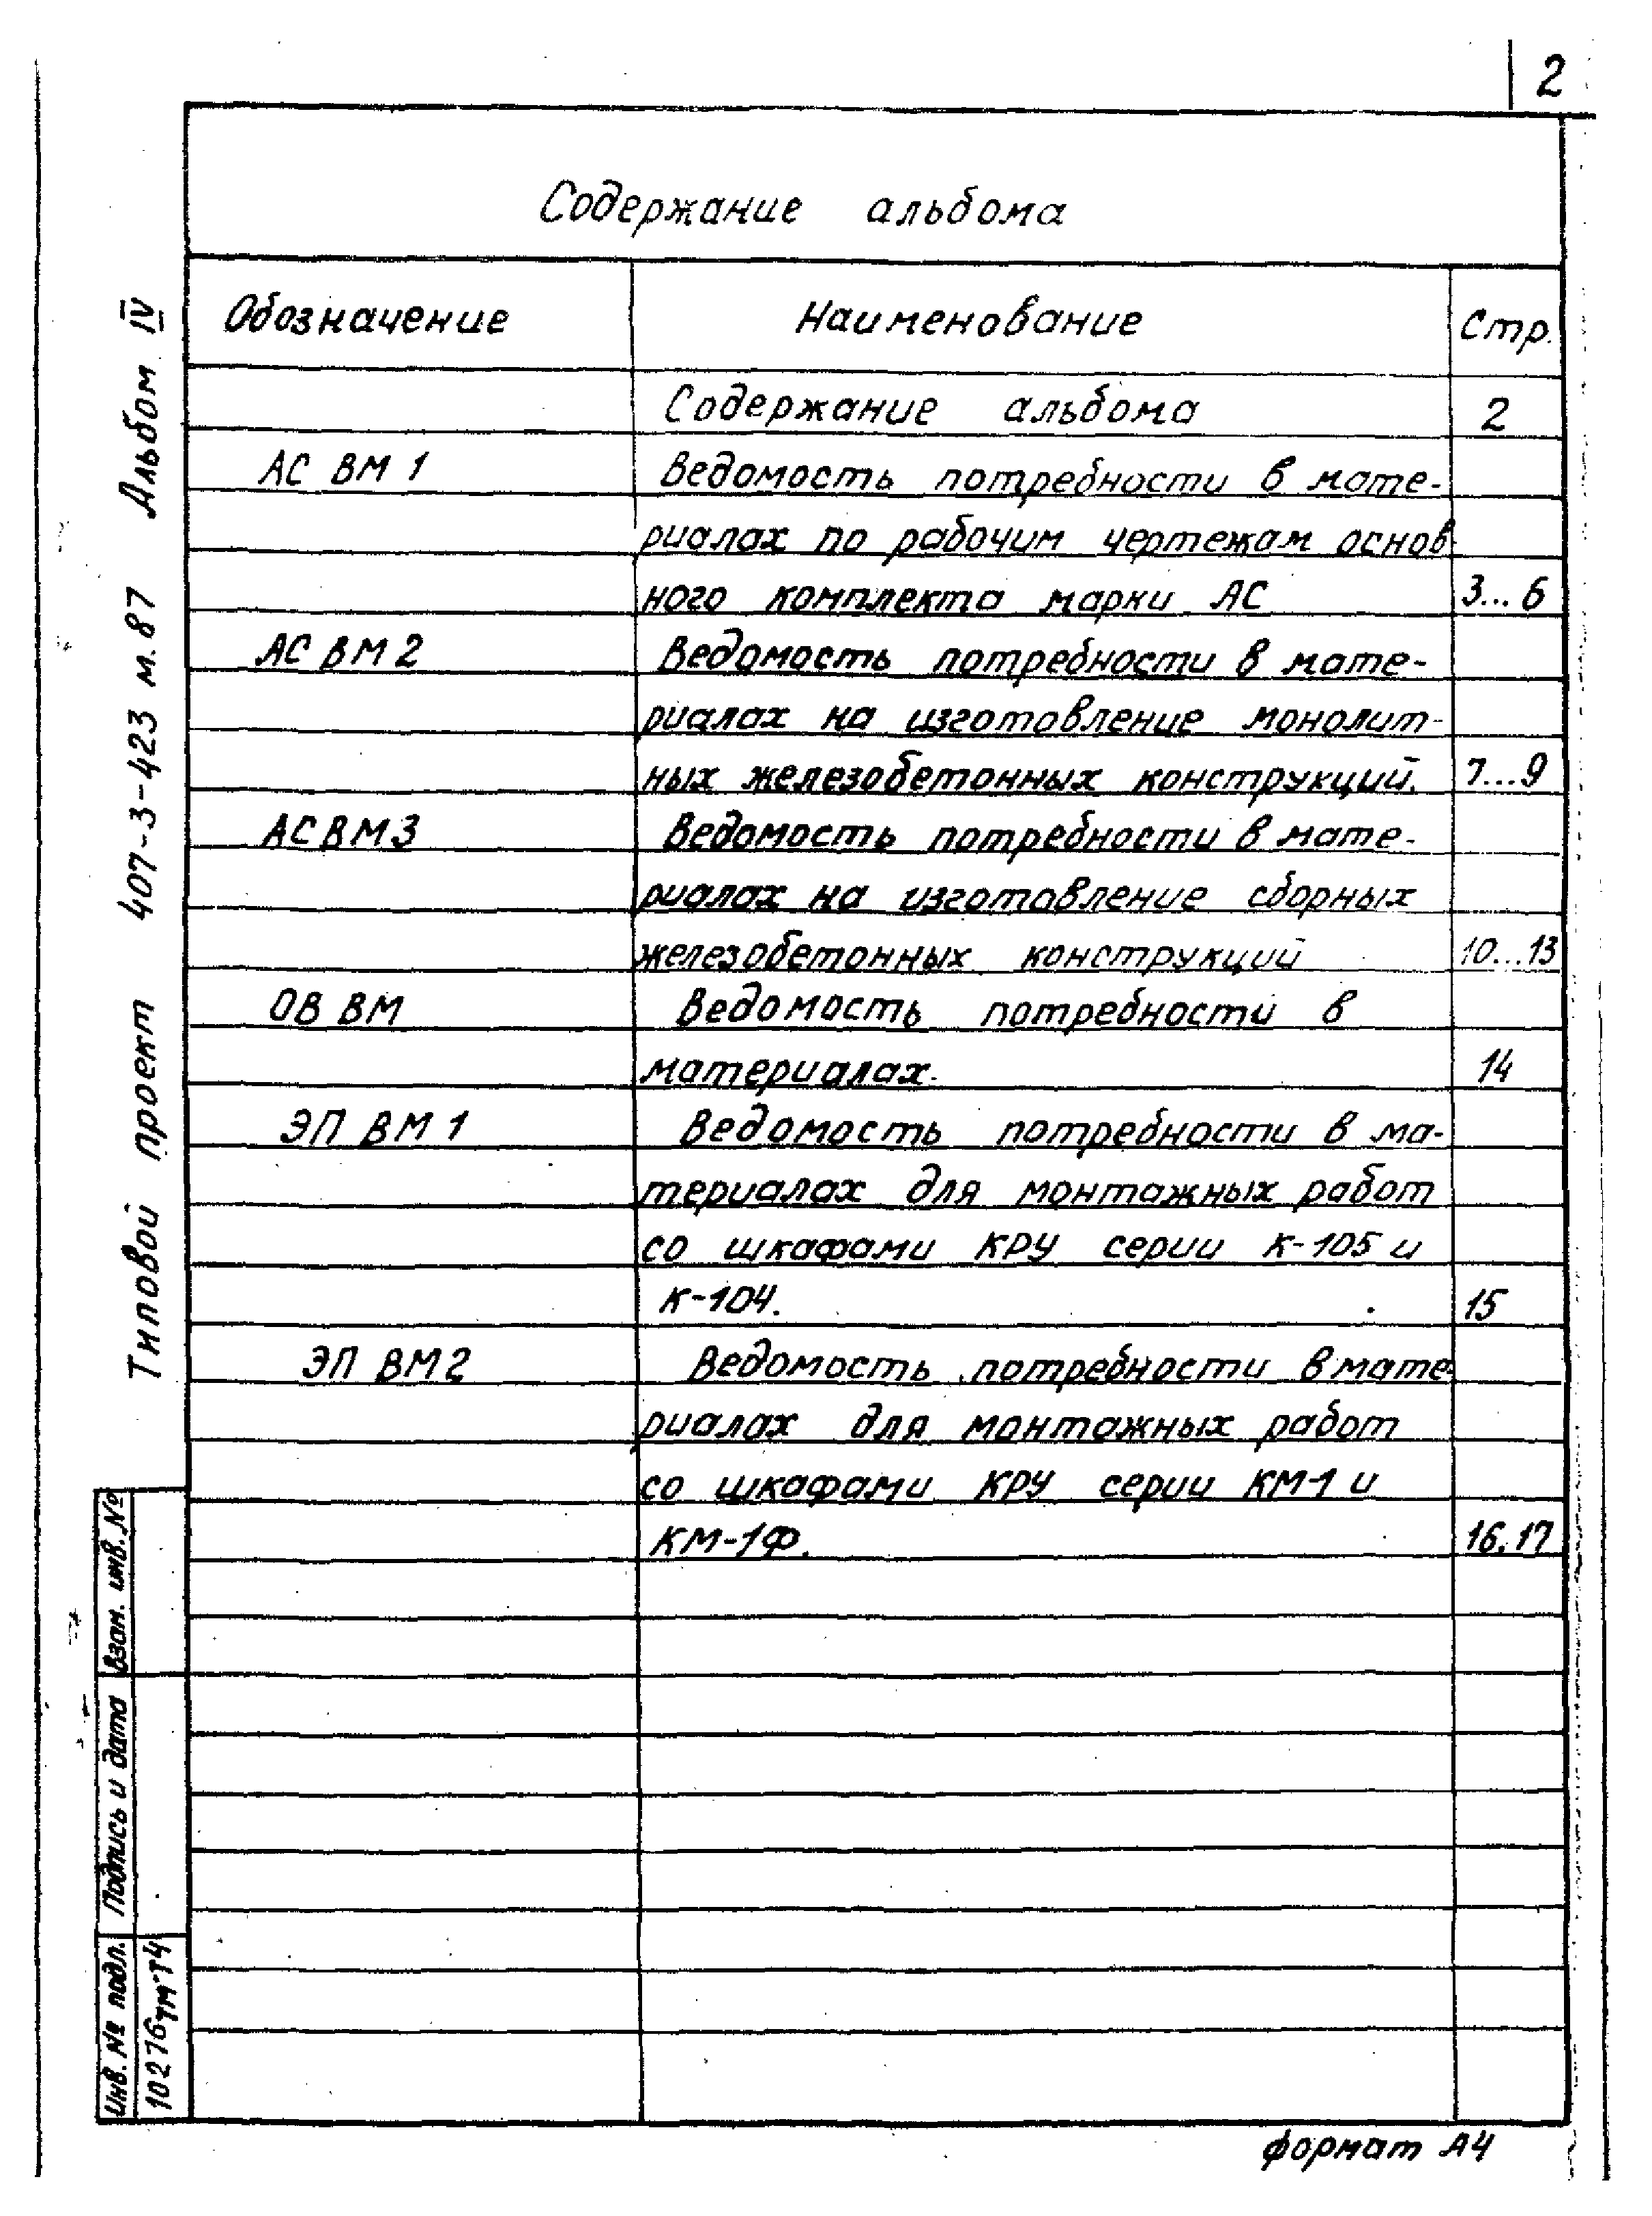 2
Содержание альбома
Обозначение Наименование Стр.
Содержание альбома 2
АС ВМ 1 Ведомость потребности в мате-
риалах по рабочим чертежам основ-
ного комплекта марки АС 3...6
АС ВМ 2 Ведомость потребности в мате-
риалах на изготовление монолит-
ных железобетонных конструкций. 7...9
АС ВМ 3 Ведомость потребности в мате-
риалах на изготовление сборных
железобетонных конструкций 10...13
ОВ ВМ Ведомость потребности в
материалах. 14
ЭП ВМ 1 Ведомость потребности в ма-
териалах для монтажных работ
со шкафами КРУ серии К-105 и
К-104. 15
ЭП ВМ 2 Ведомость потребности в мате-
риалах для монтажных работ
со шкафами КРУ серии КМ-1 и
КМ-1Ф. 16,17
Типовой проект 407-3-423 м. 87 Альбом IV
Взам. инв. №
Подпись и дата
Инв. № подл.
10276тм-т4
формат А4